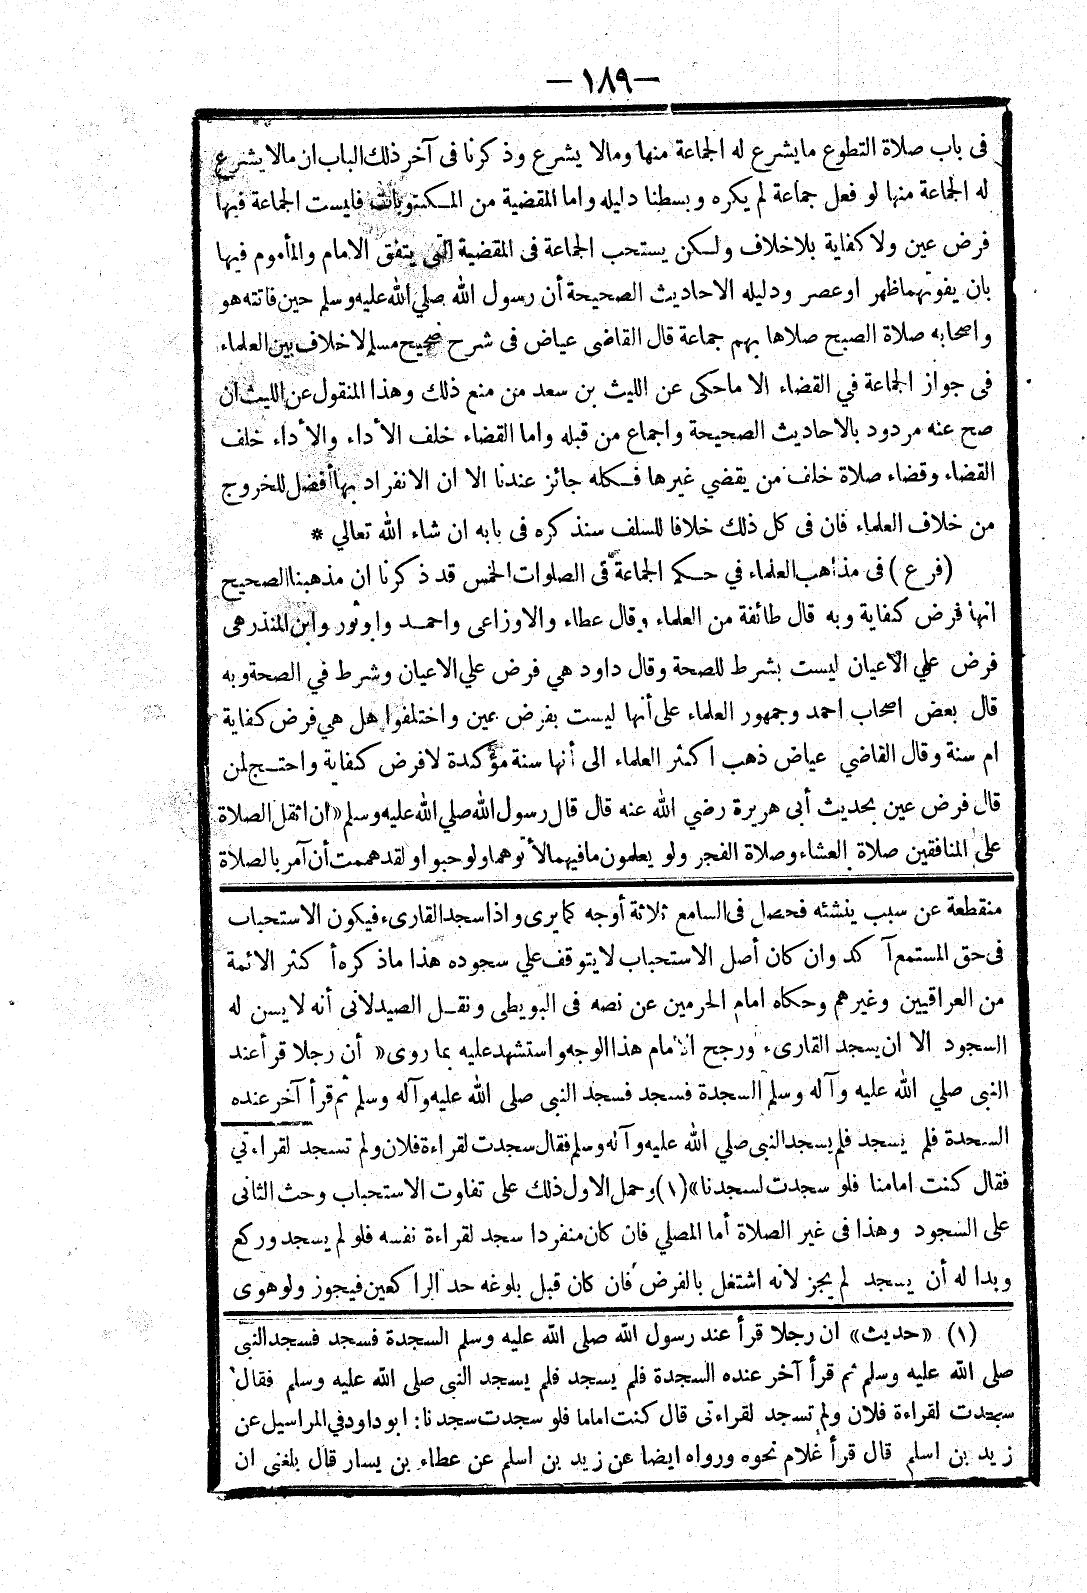 —١٨٩—
فى باب صلاة التطوع مايشرع له الجماعة منها ومالا يشرع وذكرنا فى آخر ذلك الباب ان مالا يشرع
له الجماعة منها لو فعل جماعة لم يكره وبسطنا دليله واما المقضية من المكتوبات فليست الجماعة فيها
فرض عين ولا كفاية بلاخلاف ولكن يستحب الجماعة فى المقضية التى يتفق الامام والمأموم فيها
بان يفوتهما ظهر او عصر ودليله الاحاديث الصحيحة أن رسول الله صلي الله عليه وسلم حين فاتته هو
واصحابه صلاة الصبح صلاها بهم جماعة قال القاضى عياض فى شرح صحيح مسلم لاخلاف بين العلماء
فى جواز الجماعة في القضاء الا ماحكى عن الليث بن سعد من منع ذلك وهذا المنقول عن الليث ان
صح عنه مردود بالاحاديث الصحيحة واجماع من قبله واما القضاء خلف الأداء والأداء خلف
القضاء وقضاء صلاة خلف من يقضي غيرها فكله جائز عندنا الا ان الانفراد بها أفضل للخروج
من خلاف العلماء فان فى كل ذلك خلافا للسلف سنذكره فى بابه ان شاء الله تعالي *
(فرع) فى مذاهب العلماء في حكم الجماعة فى الصلوات الخمس قد ذكرنا ان مذهبنا الصحيح
انها فرض كفاية وبه قال طائفة من العلماء وقال عطاء والاوزاعى واحمد وابو ثور وابن المنذر هى
فرض علي الاعيان ليست بشرط للصحة وقال داود هي فرض علي الاعيان وشرط في الصحة وبه
قال بعض اصحاب احمد وجمهور العلماء على أنها ليست بفرض عين واختلفوا هل هي فرض كفاية
ام سنة وقال القاضي عياض ذهب اكثر العلماء الى أنها سنة مؤكدة لا فرض كفاية واحتج لمن
قال فرض عين بحديث أبى هريرة رضي الله عنه قال قال رسول الله صلي الله عليه وسلم «ان اثقل الصلاة
على المنافقين صلاة العشاء وصلاة الفجر ولو يعلمون مافيهما لأتوهما ولو حبوا ولقد هممت أن آمر بالصلاة
منقطعة عن سبب ينشئه فحصل فى السامع ثلاثة أوجه كما يرى واذا سجد القارىء فيكون الاستحباب
فى حق المستمع آكد وان كان أصل الاستحباب لا يتوقف علي سجوده هذا ماذكره أكثر الائمة
من العراقيين وغيرهم وحكاه امام الحرمين عن نصه فى البويطى ونقل الصيدلانى أنه لا يسن له
السجود الا ان يسجد القارىء ورجح الامام هذا الوجه واستشهد عليه بما روى «أن رجلا قرأ عند
النبى صلي الله عليه وآله وسلم السجدة فسجد فسجد النبى صلى الله عليه وآله وسلم ثم قرأ آخر عنده
السجدة فلم يسجد فلم يسجد النبى صلي الله عليه وآله وسلم فقال سجدت لقراءة فلان ولم تسجد لقراءتي
فقال كنت امامنا فلو سجدت لسجدنا» (١) وحمل الاول ذلك على تفاوت الاستحباب وحث الثانى
على السجود وهذا فى غير الصلاة أما المصلي فان كان منفردا سجد لقراءة نفسه فلو لم يسجد وركع
وبدا له أن يسجد لم يجز لانه اشتغل بالفرض فان كان قبل بلوغه حد الراكعين فيجوز ولو هوى
(١) «حديث» ان رجلا قرأ عند رسول الله صلى الله عليه وسلم السجدة فسجد فسجد النبى
صلى الله عليه وسلم ثم قرأ آخر عنده السجدة فلم يسجد فلم يسجد النبى صلى الله عليه وسلم فقال
سجدت لقراءة فلان ولم تسجد لقراءتى قال كنت اماما فلو سجدت سجدنا: ابو داود في المراسيل عن
زيد بن اسلم قال قرأ غلام نحوه ورواه ايضا عن زيد بن اسلم عن عطاء بن يسار قال بلغنى ان